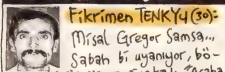 Fikrimen TENKYU (30):
Misal Gregor Samsa...
Sabah bi uyanıyor, bö-